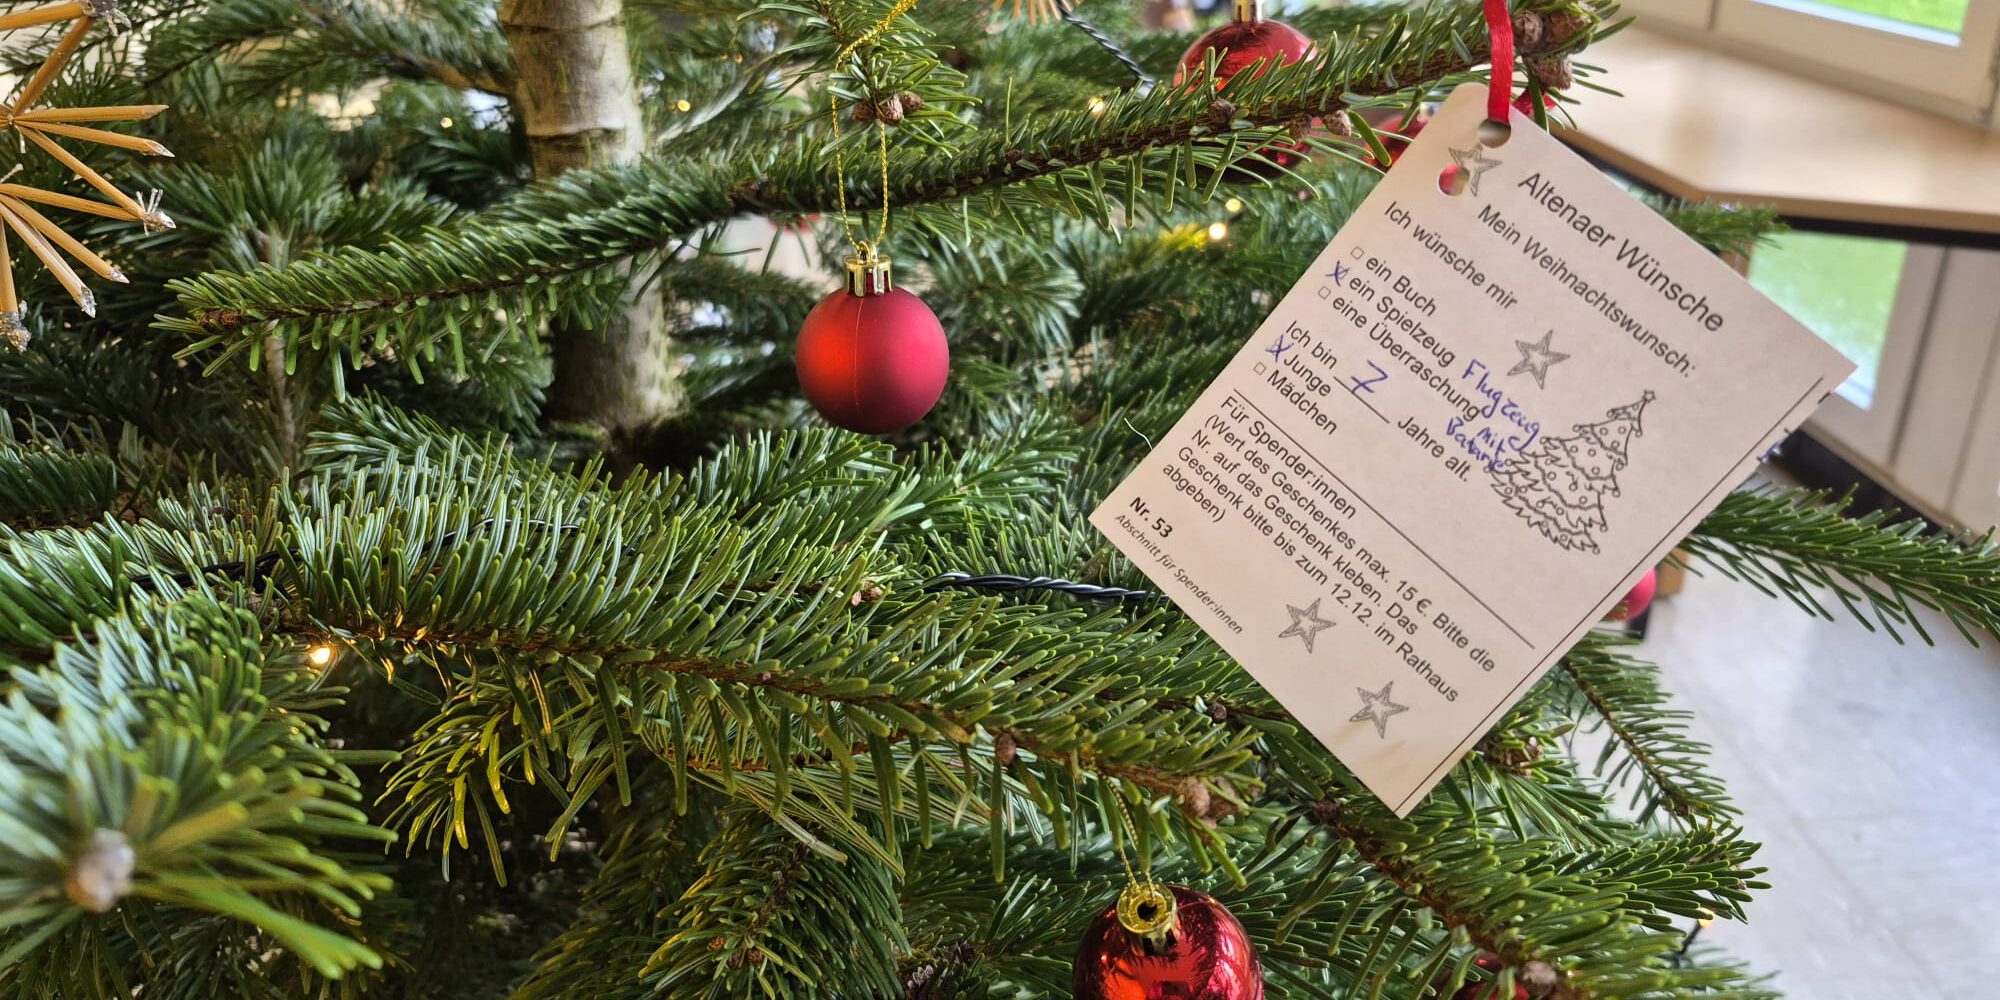 Altenaer Wünsche
Mein Weihnachtswunsch:
Ich wünsche mir
□ ein Buch
☒ ein Spielzeug Flugzeug
□ eine Überraschung mit
Batterie
Ich bin 7 Jahre alt.
☒ Junge
□ Mädchen
Für Spender:innen
(Wert des Geschenkes max. 15 €. Bitte die
Nr. auf das Geschenk kleben. Das
Geschenk bitte bis zum 12.12. im Rathaus
abgeben)
Nr. 53
Abschnitt für Spender:innen